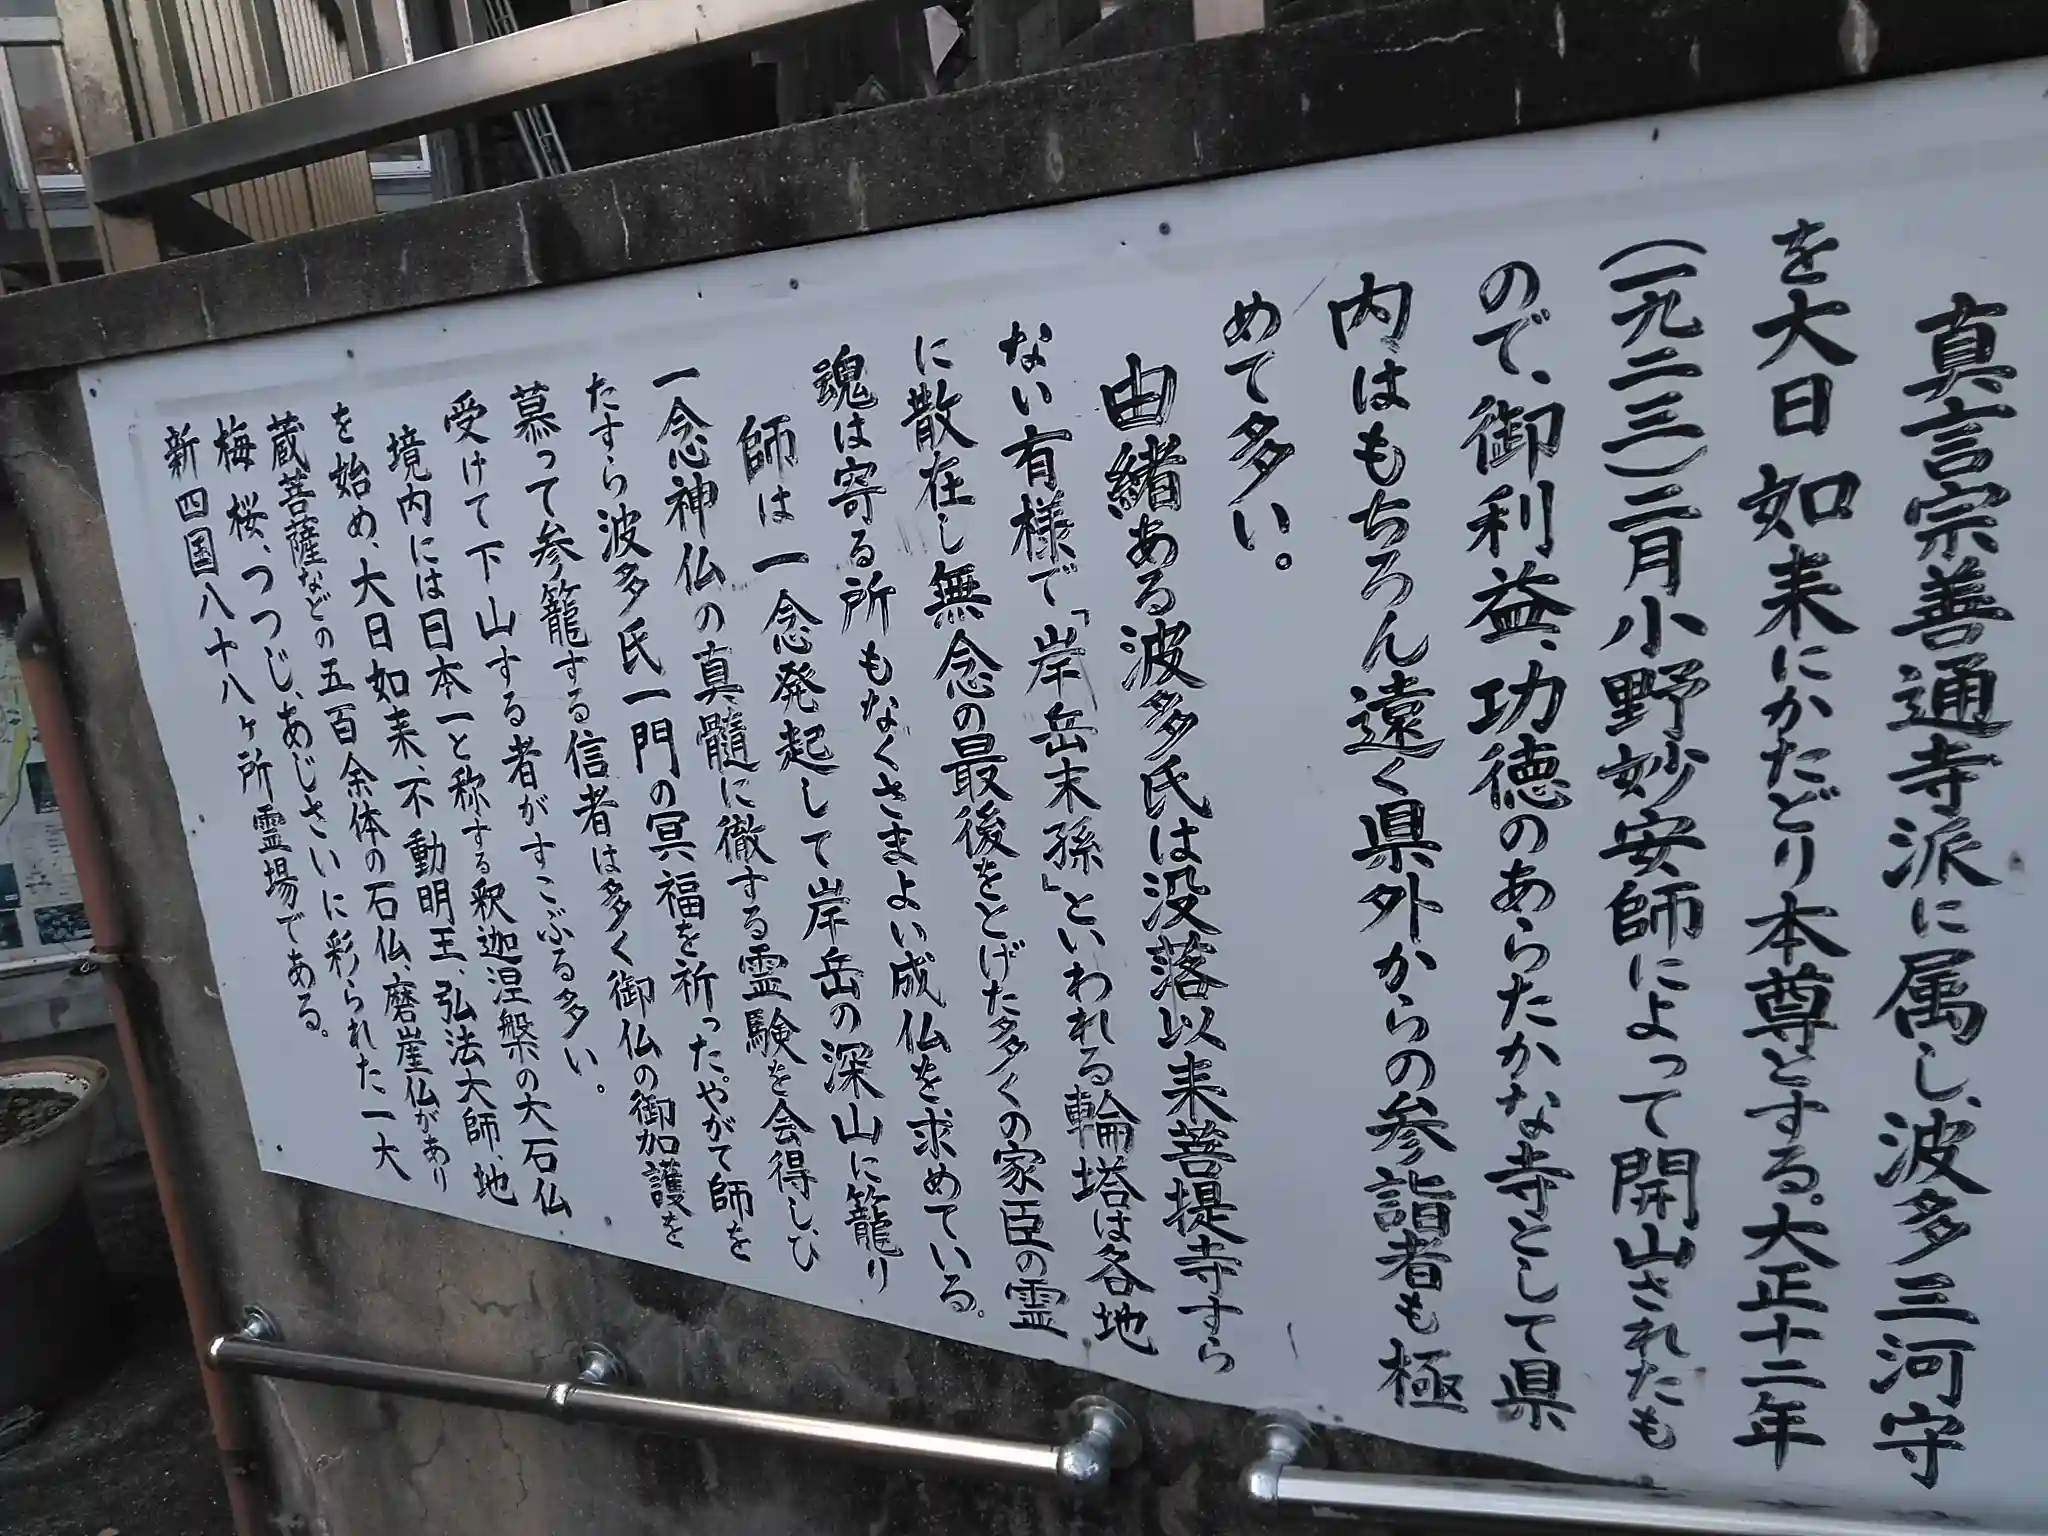 真言宗善通寺派に属し、波多三河守
を大日如来にかたどり本尊とする。大正十二年
(一九二三)二月小野妙安師によって開山されたも
ので、御利益、功徳のあらたかな寺として県
内はもちろん遠く県外からの参詣者も極
めて多い。
由緒ある波多氏は没落以来菩提寺すら
ない有様で「岸岳末孫」といわれる輪塔は各地
に散在し無念の最後をとげた多くの家臣の霊
魂は寄る所もなくさまよい成仏を求めている。
師は一念発起して岸岳の深山に籠り
一念神仏の真髄に徹する霊験を会得し、ひ
たすら波多氏一門の冥福を祈った。やがて師を
慕って参籠する信者は多く御仏の御加護を
受けて下山する者がすこぶる多い。
境内には日本一と称する釈迦涅槃の大石仏
を始め、大日如来、不動明王、弘法大師、地
蔵菩薩などの五百余体の石仏、磨崖仏があり
梅、桜、つつじ、あじさいに彩られた一大
新四国八十八ヶ所霊場である。